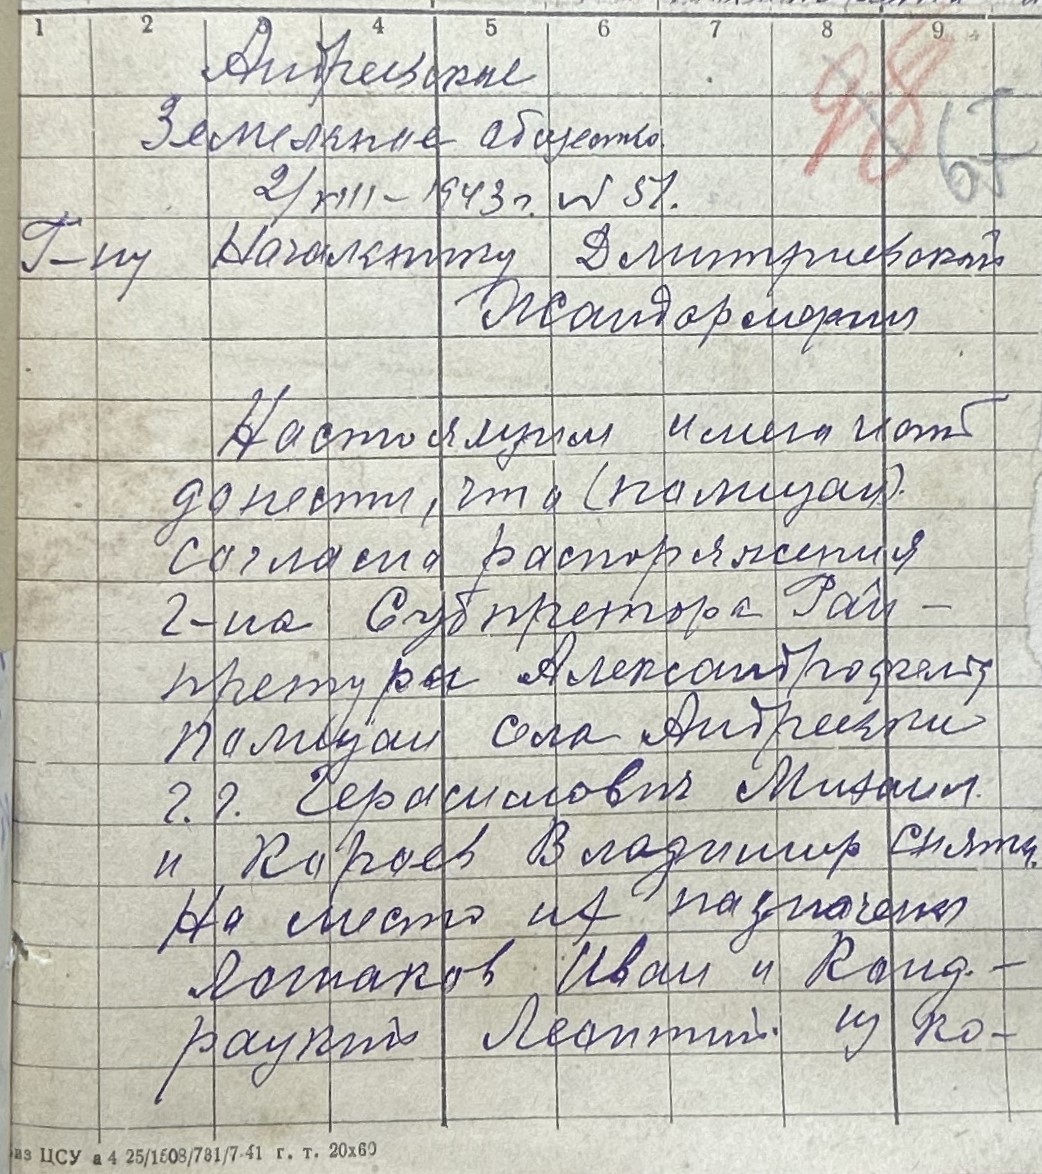 1 2 3 4 5 6 7 8 9
Андреевское
Земельное общество
98 67
2/VIII – 1943 г. № 51.
Г-ну Начальнику Дмитриевской
Жандармерии
Настоящим имею честь
донести, что (полицаи).
Согласно распоряжения
г-на Субпретора Рай-
претуры Александрофельд
полицаи села Андреевки
г.г. Герасимович Михаил
и Караев Владимир сняты.
На место их назначены
Иван и Конд-
Леонтий. из ко-
из ЦСУ а 4 25/1508/781/7-41 г. т. 20х60